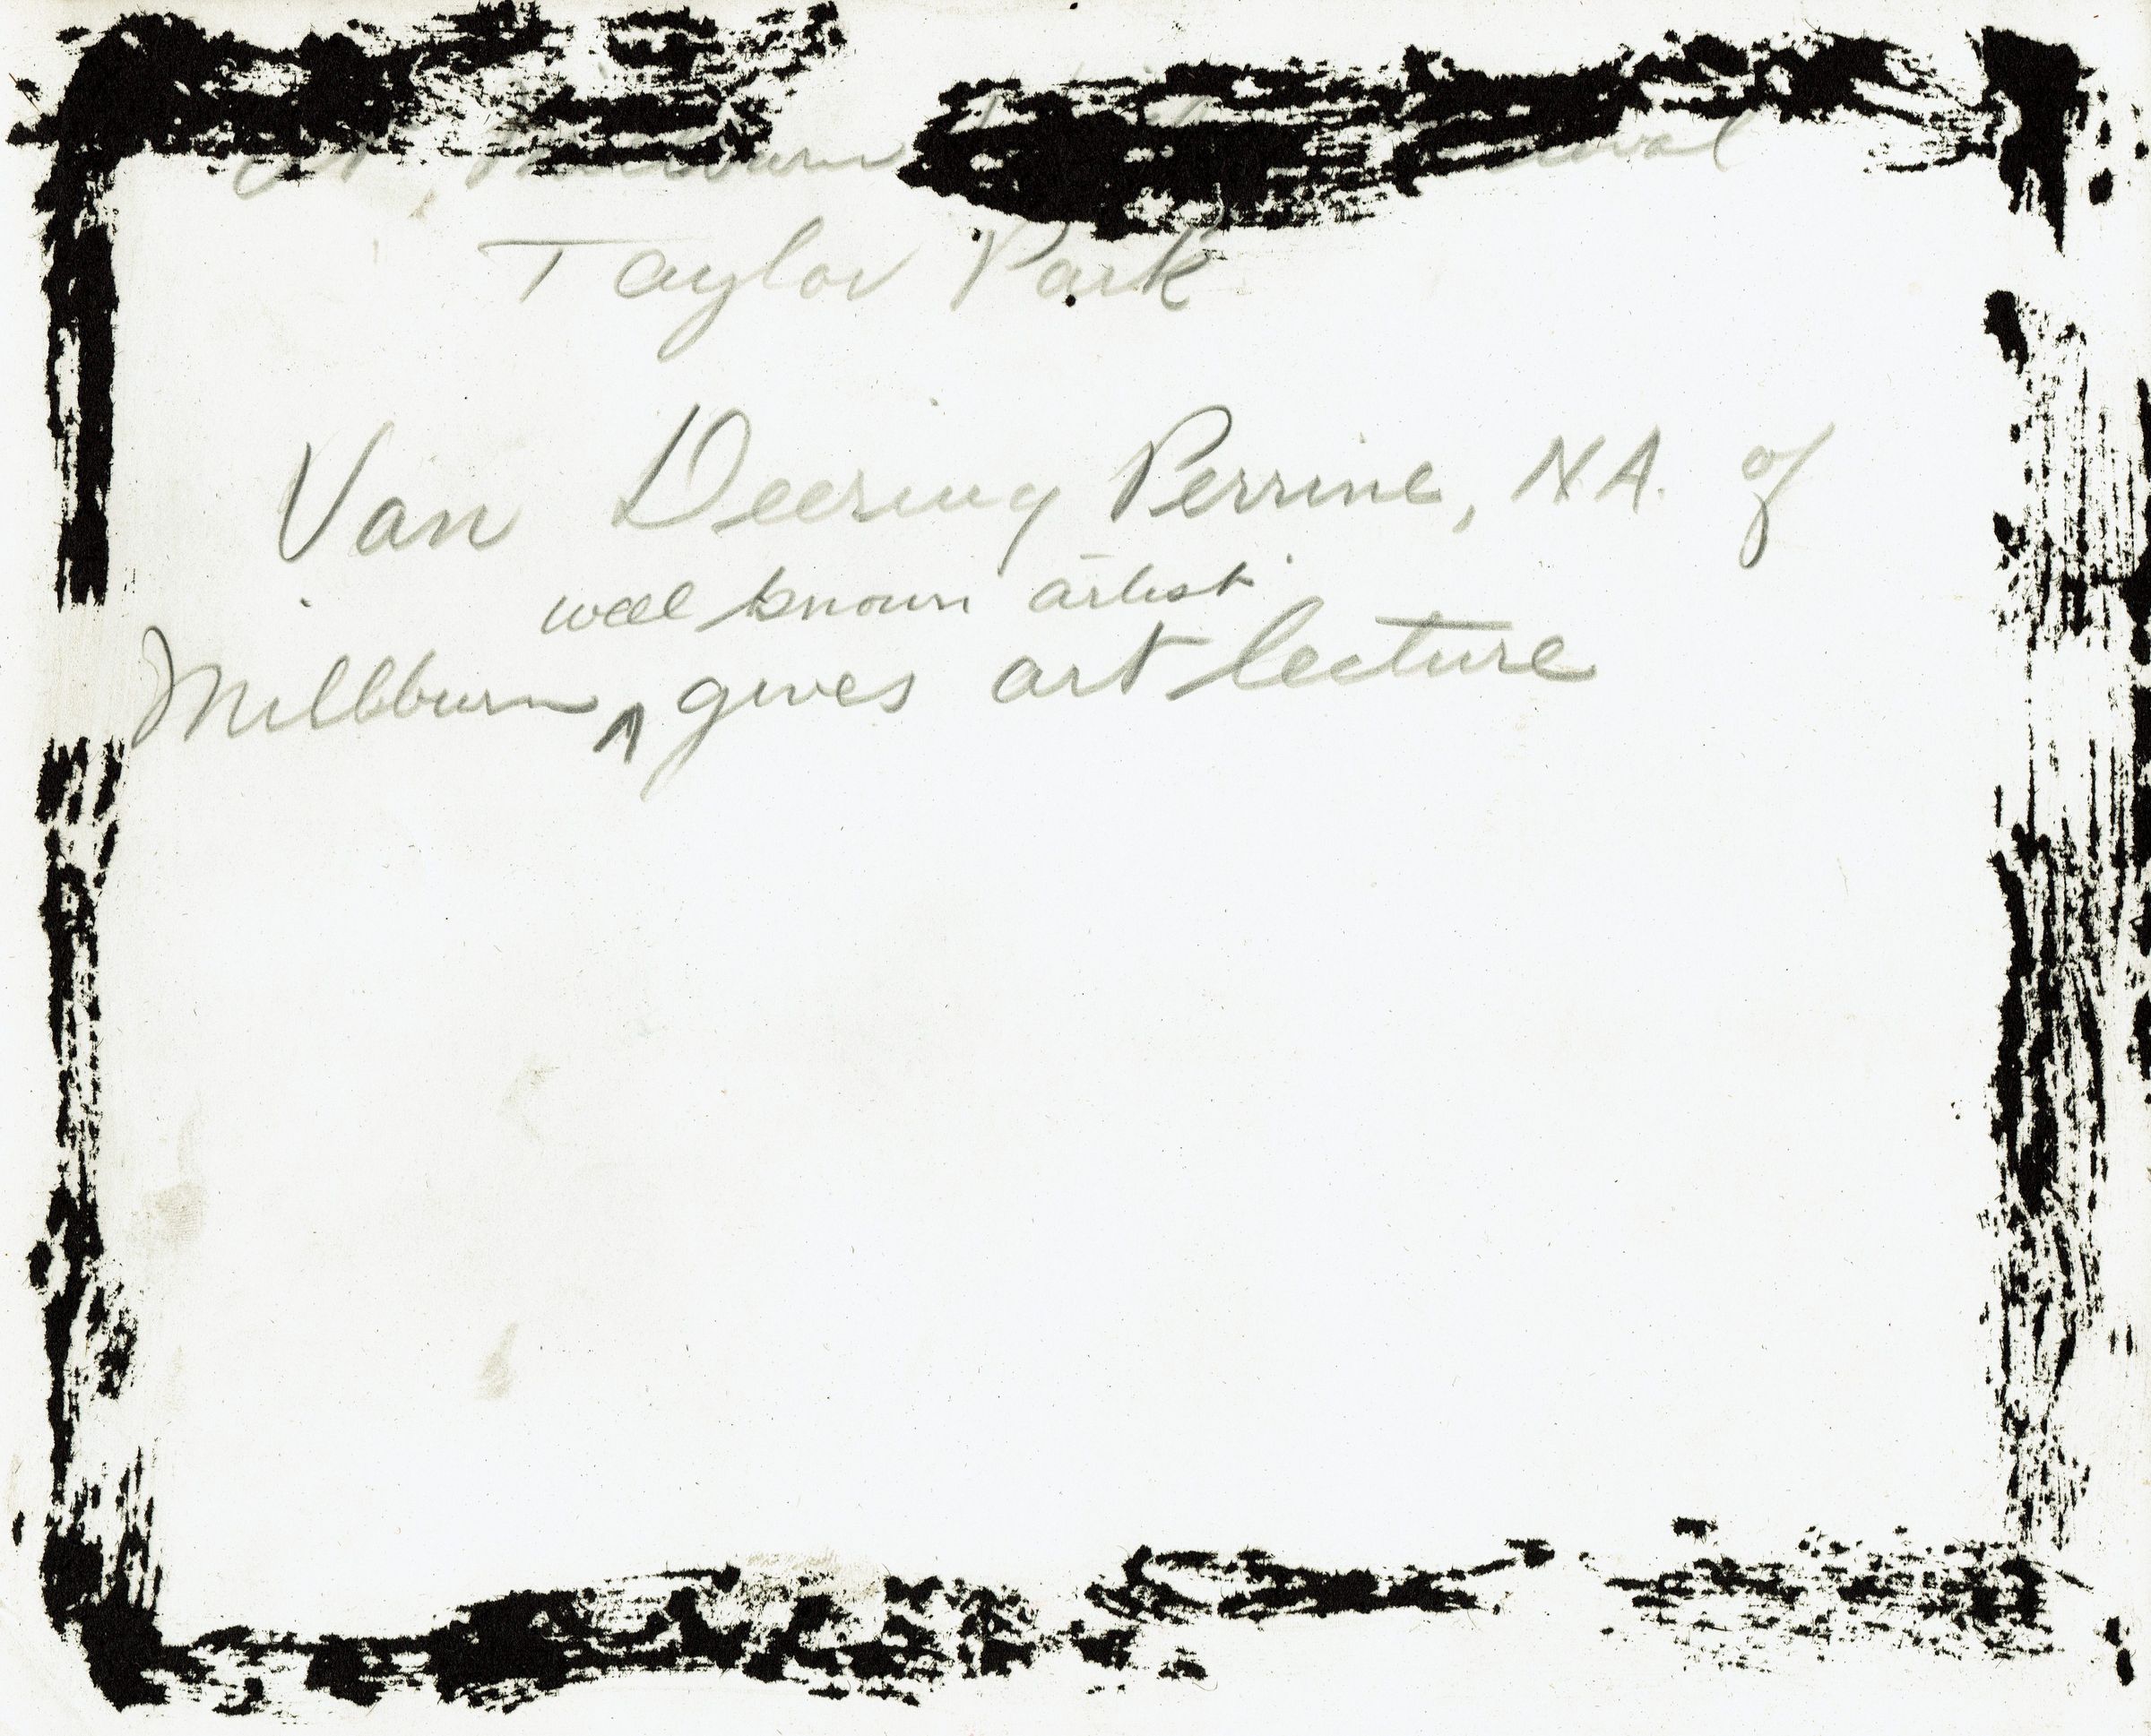 Taylor Park
Van Deering Perrine, N.A. of
well known artist
Millburn ^ gives art lecture